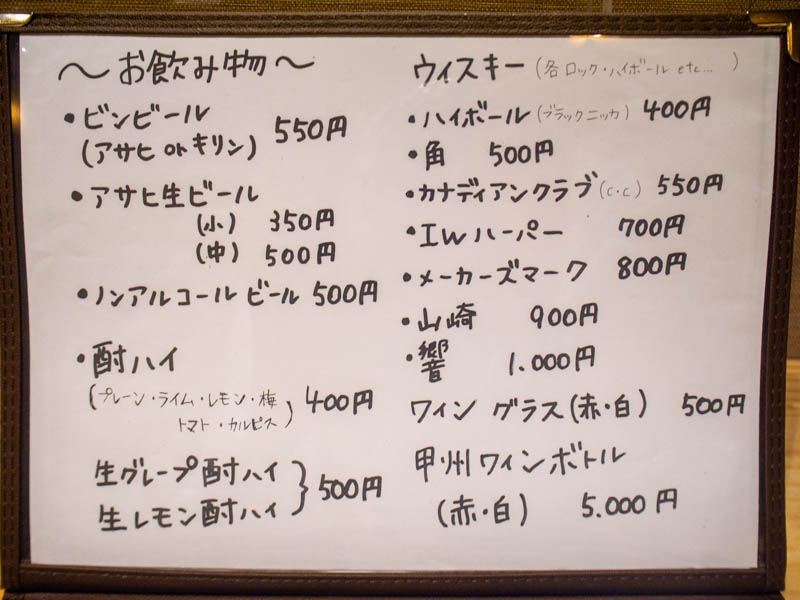 ～お飲み物～
・ビンビール
(アサヒ or キリン) 550円
・アサヒ生ビール
(小) 350円
(中) 500円
・ノンアルコールビール 500円
・酎ハイ
(プレーン・ライム・レモン・梅
トマト・カルピス) 400円
生グレープ酎ハイ
生レモン酎ハイ } 500円
ウィスキー (各ロック・ハイボール etc... )
・ハイボール (ブラックニッカ) 400円
・角 500円
・カナディアンクラブ (C・C) 550円
・IWハーパー 700円
・メーカーズマーク 800円
・山崎 900円
・響 1.000円
ワイン グラス (赤・白) 500円
甲州ワインボトル
(赤・白) 5.000円